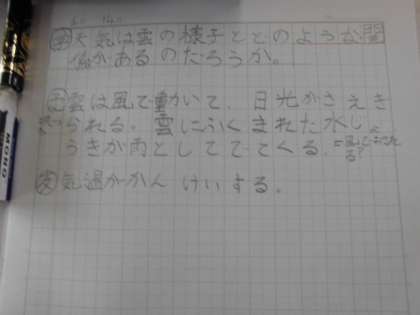 天気は雲の様子とどのような関
係があるのだろうか。
雲は風で動いて、日光がさえぎ
られる。雲にふくまれた水じょ
うきが雨としてでてくる。
気温がかんけいする。
MONO